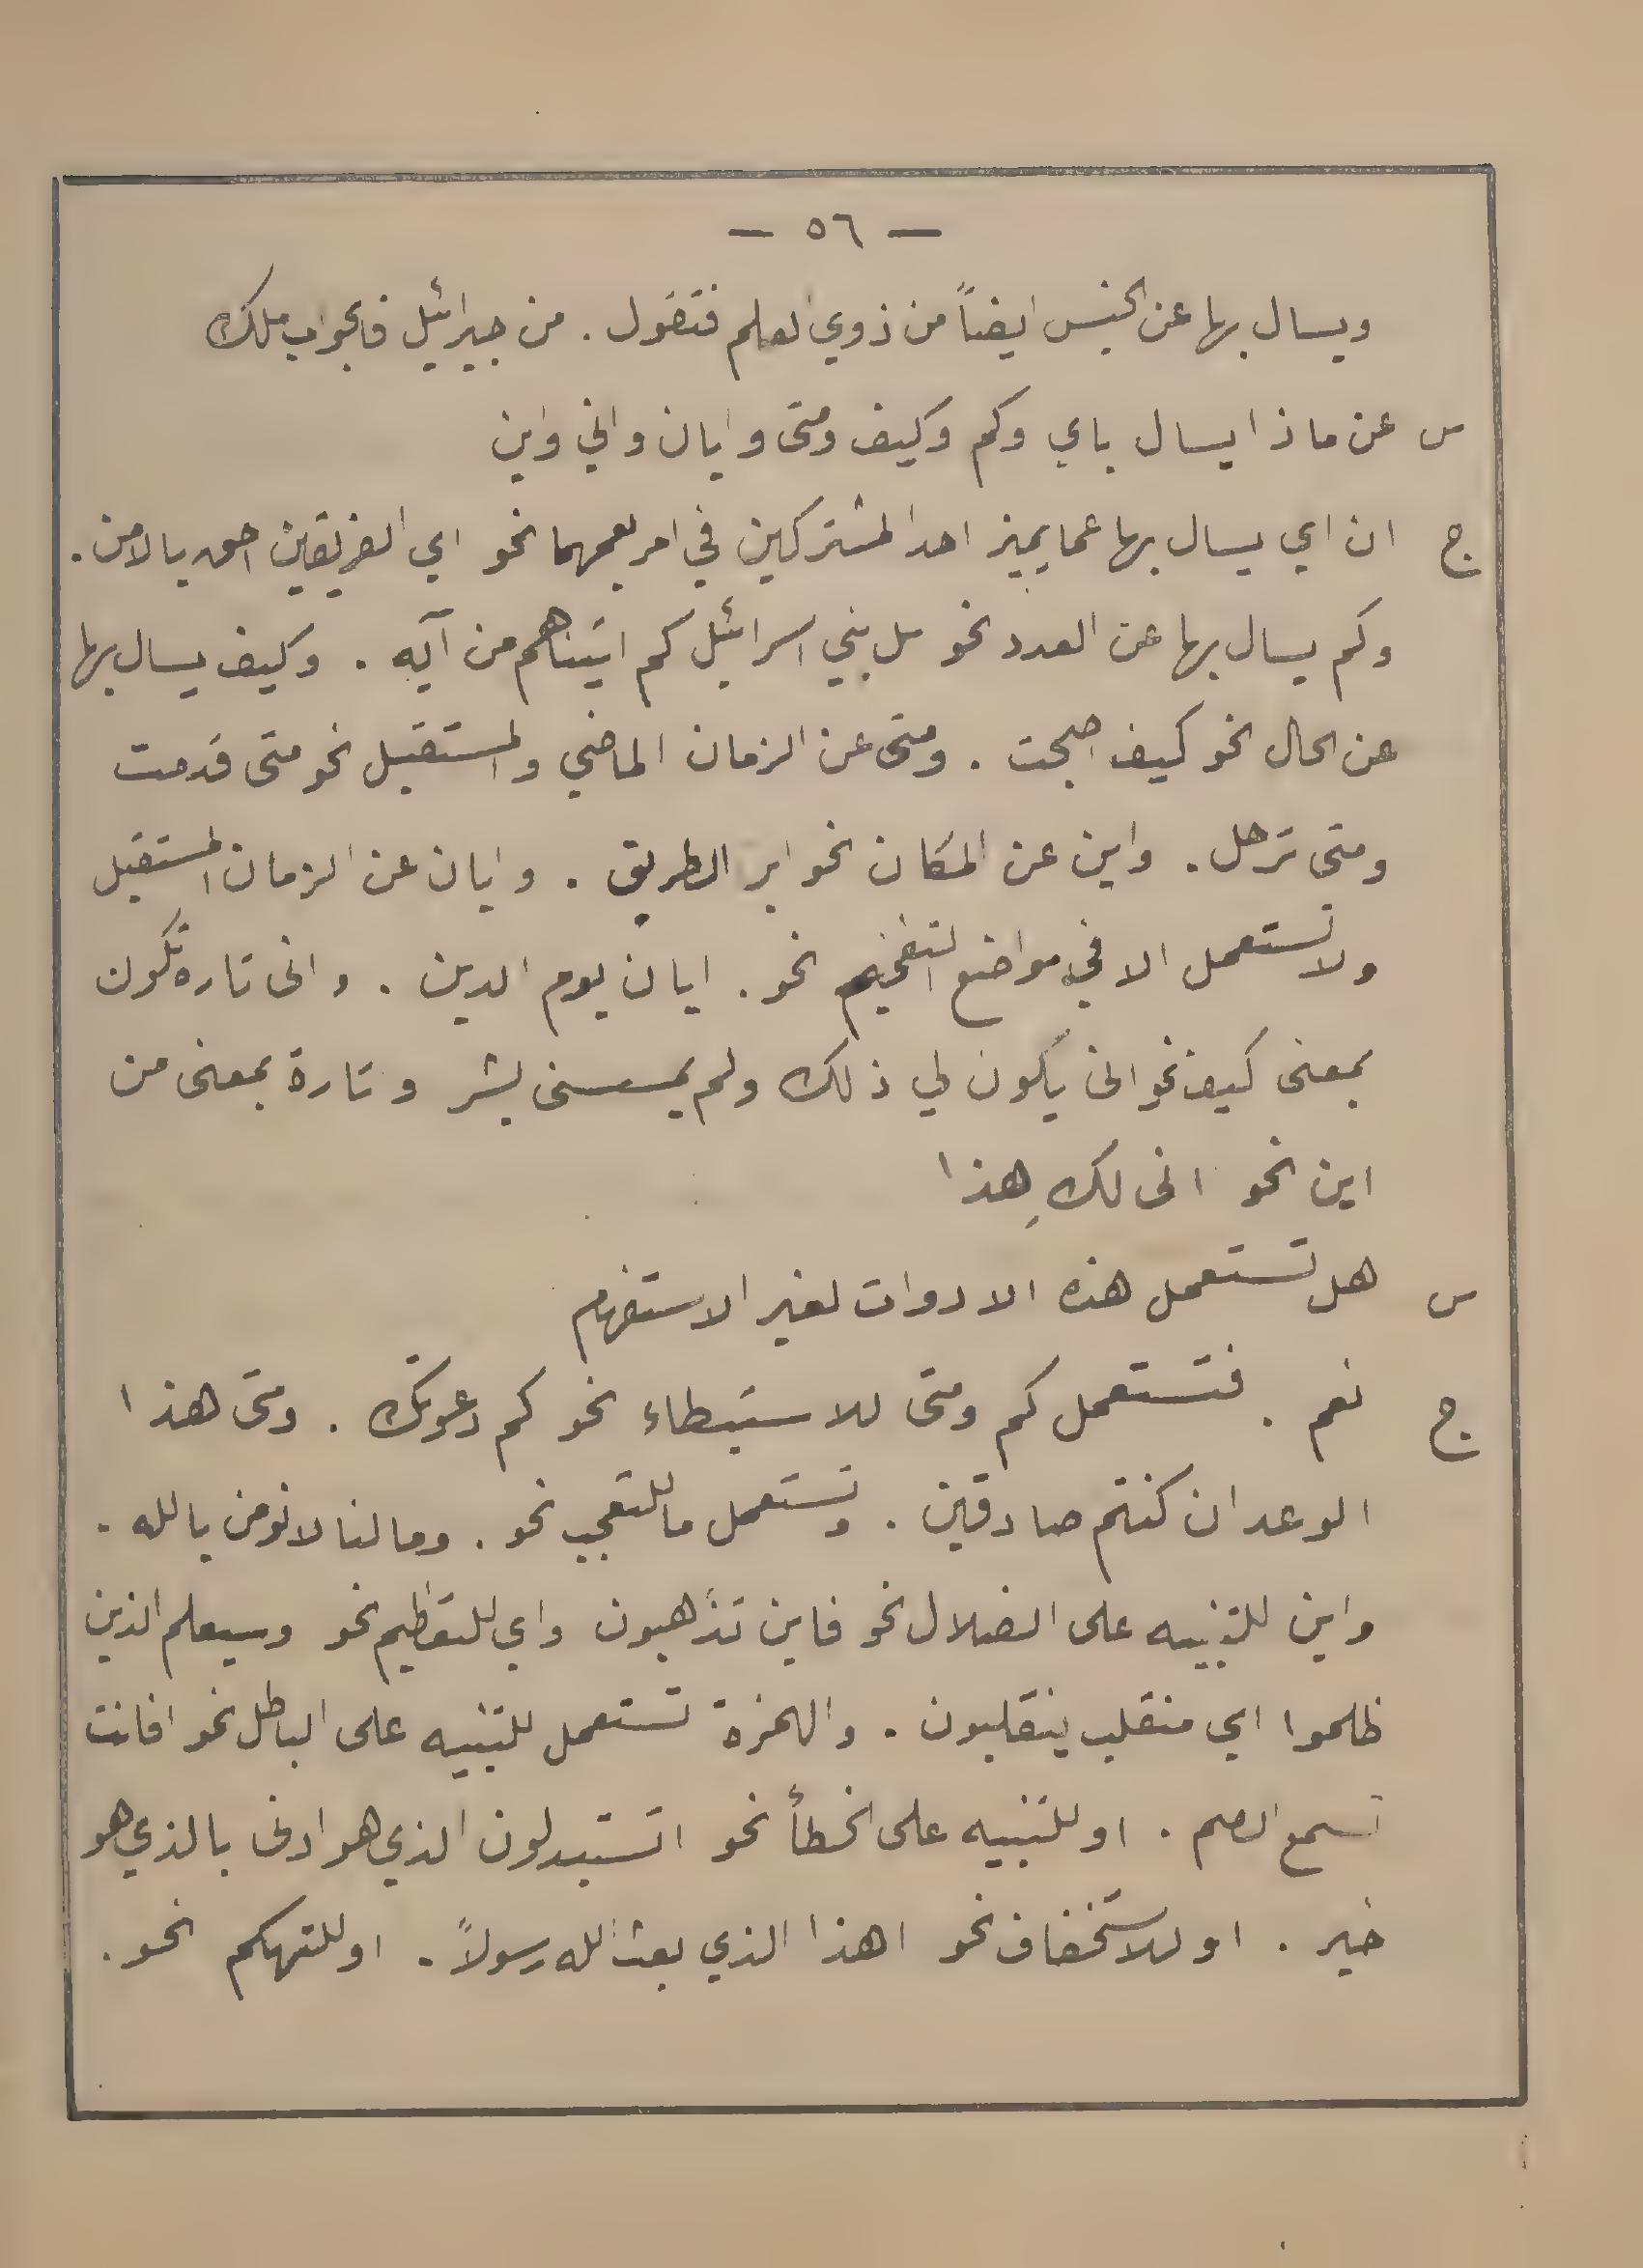 — ٥٦ —
ويسال بها عن الجنس ايضاً من ذوي العلم فتقول . من جبرائيل فالجواب ملك
س عن ماذا يسال باي وكم وكيف ومتى وايان واني واين
ج ان اي يسال بها عما يميز احد المشتركين في امر يعمهما نحو اي الفريقين احق بالامن .
وكم يسال بها عن العدد نحو سل بني اسرائيل كم اتيناهم من آيه . وكيف يسال بها
عن الحال نحو كيف اصبحت . ومتى عن الزمان الماضي والمستقبل نحو متى قدمت
ومتى ترحل . واين عن المكان نحو اين الطريق . وايان عن الزمان المستقبل
ولا تستعمل الا في مواضع التفخيم نحو . ايان يوم الدين . وانى تاره تكون
بمعنى كيف نحو انى يكون لي ذلك ولم يمسسنى بشر وتارة بمعنى من
اين نحو انى لك هذا
س هل تستعمل هذه الادوات لغير الاستفهام
ج نعم . فتستعمل كم ومتى للاستبطاء نحو كم دعوتك . ومتى هذا
الوعد ان كنتم صادقين . وتستعمل ما للتعجب نحو . وما لنا لا نومن بالله .
واين للتنبيه على الضلال نحو فاين تذهبون واي للتعظيم نحو وسيعلم الذين
ظلموا اي منقلب ينقلبون . والهمزة تستعمل للتنبيه على الباطل نحو افانت
تسمع الصم . او للتنبيه على الخطأ نحو اتستبدلون الذي هو ادنى بالذي هو
خير . او للاستخفاف نحو اهذا الذي بعث الله رسولاً . او للتهكم نحو .